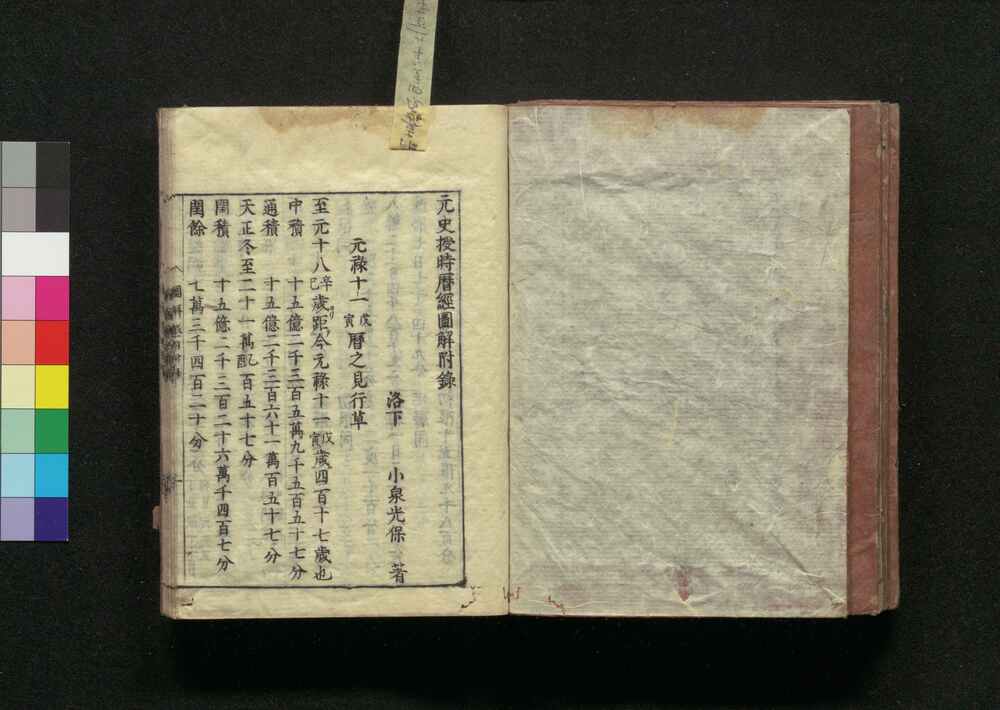 元史授時曆經圖解附錄
洛下 小泉光保 著
元祿十一戊寅曆之見行草
至元十八辛巳歲距今元祿十一戊寅歲四百十七歲也
中積 十五億二千三百五萬九千五百五十七分
通積 十五億二千三百六十一萬百五十七分
天正冬至二十一萬百五十七分
閏積 十五億二千三百二十六萬千四百七分
閏餘 七萬三千四百二十分